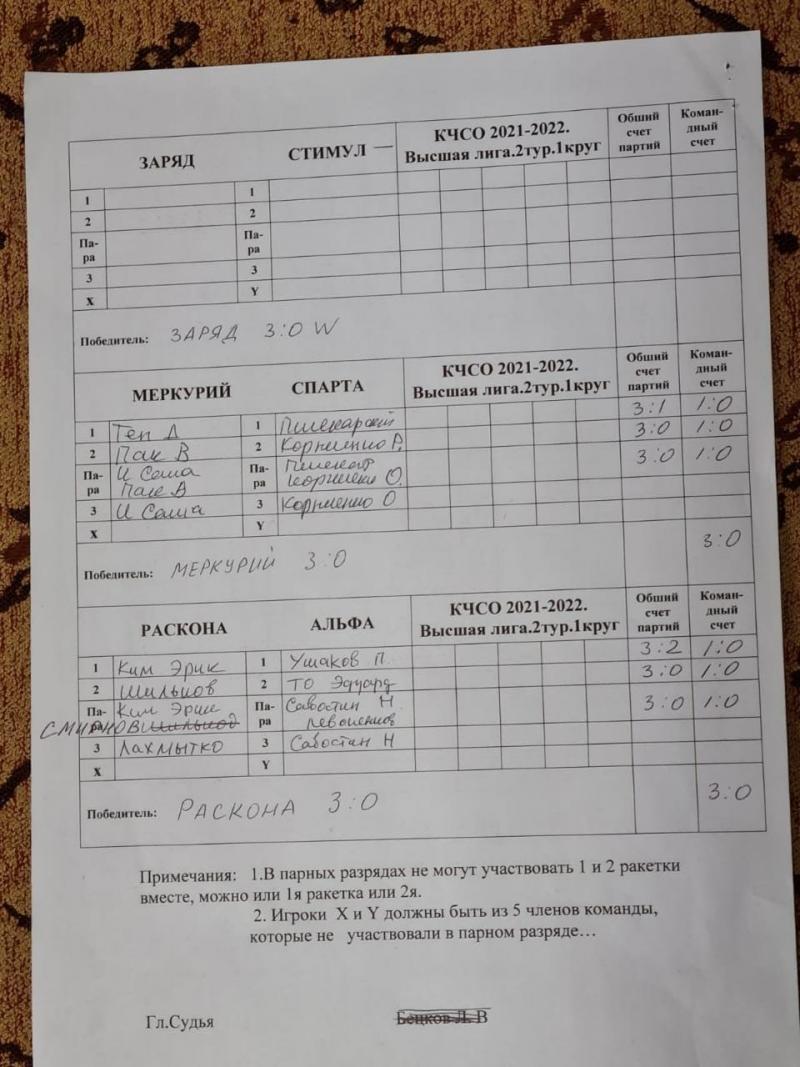 ЗАРЯД СТИМУЛ — КЧСО 2021-2022. Высшая лига.2тур.1круг Обший счет партий Коман-дный счет
1 1
2 2
Па-ра Па-ра
3 3
X Y
Победитель: ЗАРЯД 3:0 W
МЕРКУРИЙ СПАРТА КЧСО 2021-2022. Высшая лига.2тур.1круг Обший счет партий Коман-дный счет
1 Тен Д 1 3:1 1:0
2 Пак В 2 Корниенко Р. 3:0 1:0
Па-ра И Саша Па-ра 3:0 1:0
Пак В О.
3 И Саша 3 Корниенко О
X Y
3:0
Победитель: МЕРКУРИЙ 3:0
РАСКОНА АЛЬФА КЧСО 2021-2022. Высшая лига.2тур.1круг Обший счет партий Коман-дный счет
1 Ким Эрик 1 Ушаков П. 3:2 1:0
2 Шильков 2 ТО Эдуард 3:0 1:0
Па-ра Ким Эрик Па-ра Савостин Н 3:0 1:0
СМИРНОВ
3 Лахмытко 3 Савостин Н
X Y
3:0
Победитель: РАСКОНА 3:0
Примечания: 1.В парных разрядах не могут участвовать 1 и 2 ракетки
вместе, можно или 1я ракетка или 2я.
2. Игроки X и Y должны быть из 5 членов команды,
которые не участвовали в парном разряде…
Гл.Судья Бецков Л. В